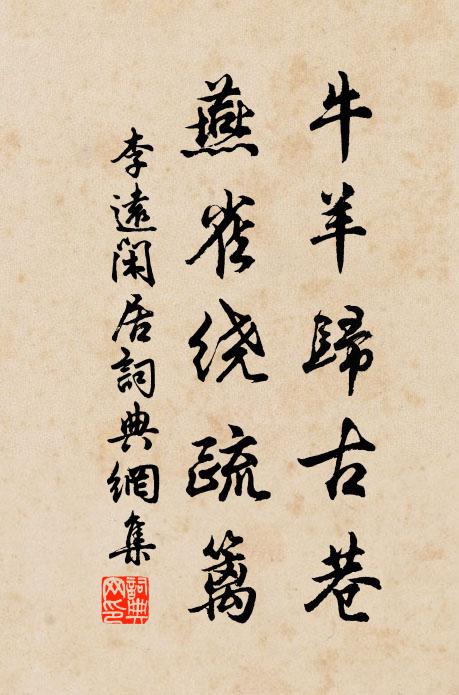 牛羊歸古巷
燕雀绕疏篱
李遠闲居詞典網集
詞典网印